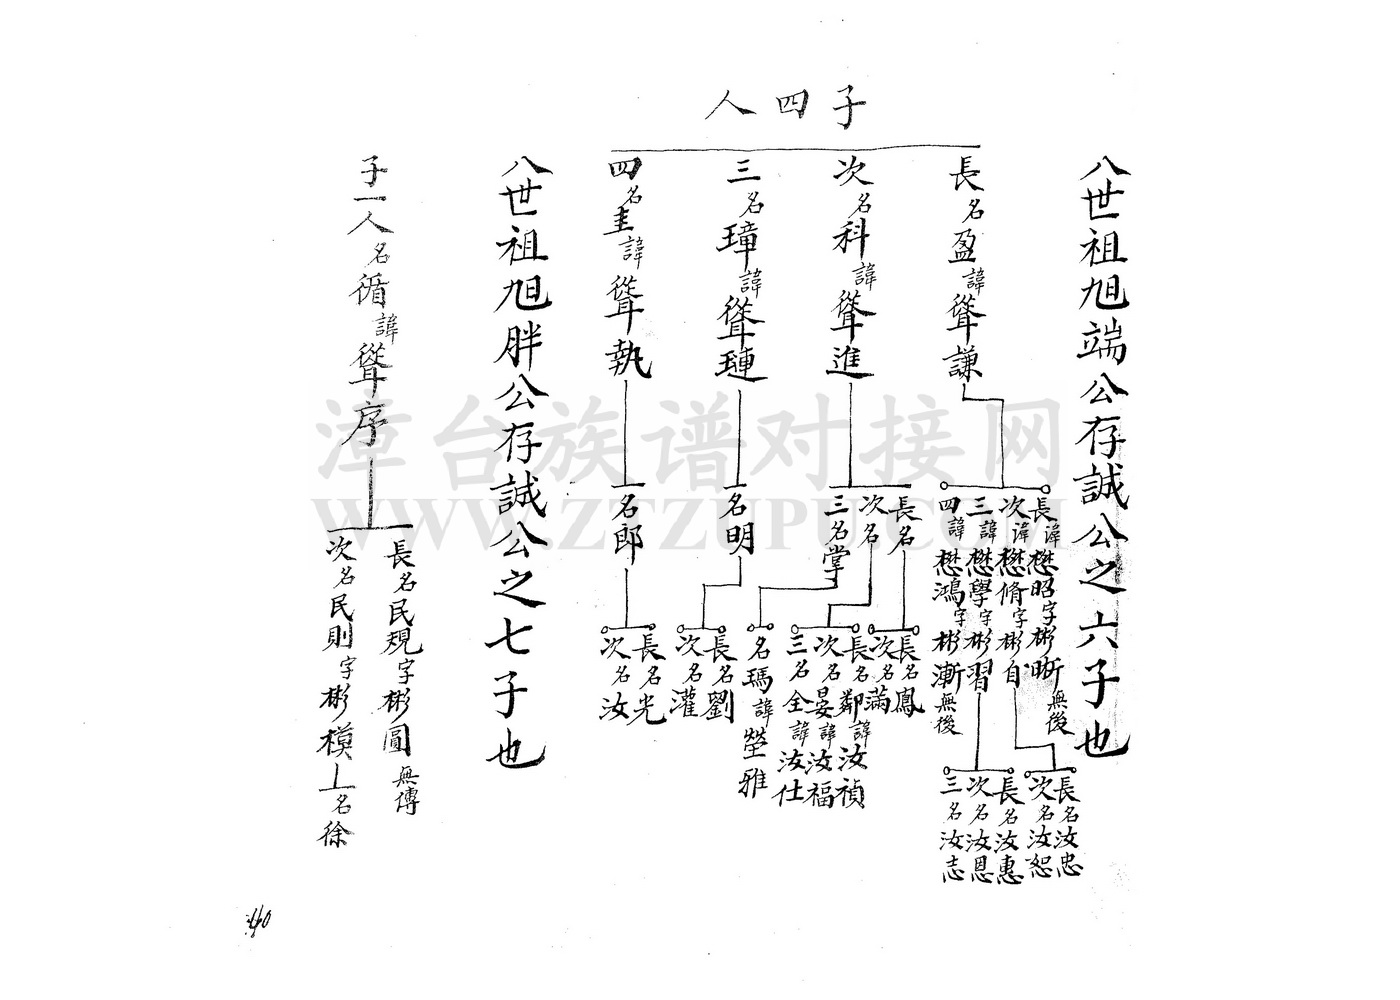 八世祖旭端公存誠公之六子也
子四人
長名盈諱聳謙
長諱懋昭字彬晣無後
次諱懋脩字彬自
三諱懋學字彬習
四諱懋鴻字彬漸無後
長名汝忠
次名汝恕
長名汝惠
次名汝恩
三名汝志
次名科諱聳進
長名
次名
三名掌
長名鳳
次名滿
長名鄰諱汝禎
次名晏諱汝福
三名全諱汝仕
名瑪諱瑩雅
三名璋諱聳璉
名明
長名劉
次名灌
四名圭諱聳執
名郎
長名光
次名汝
八世祖旭胖公存誠公之七子也
子一人名循諱聳序
長名民規字彬圓無傳
次名民則字彬模
名徐
漳台族谱对接网
WWW.ZTZUPU.COM